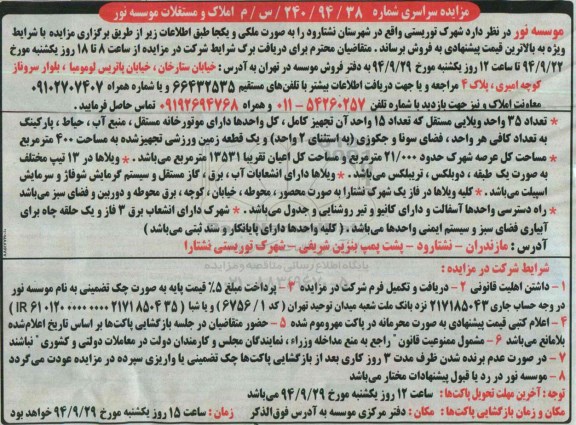 مزایده سراسری شماره ۳۸ /۹۴ /۲۴۰ /س /م املاک و مستغلات موسسه نور
موسسه نور در نظر دارد شهرک توریستی واقع در شهرستان نشتارود را به صورت ملکی و یکجا طبق اطلاعات زیر از طریق برگزاری مزایده با شرایط
ویژه به بالاترین قیمت پیشنهادی به فروش برساند . متقاضیان محترم برای دریافت برگ شرایط شرکت در مزایده از ساعت ۸ تا ۱۸ روز یکشنبه مورخ
۹۴/۹/۲۲ تا ساعت ۱۲ روز یکشنبه مورخ ۹۴/۹/۲۹ به دفتر فروش موسسه در تهران به آدرس : خیابان ستارخان ، خیابان پاتریس لومومبا ، بلوار سروناز
کوچه امیری ، پلاک ۴ مراجعه و یا جهت دریافت اطلاعات بیشتر با تلفنهای مستقیم ۶۶۴۳۲۵۳۵ و یا شماره همراه ۰۹۱۰۲۷۰۷۴۰۷
معاونت املاک و نیز جهت بازدید با شماره تلفن ۵۴۲۶۰۲۵۷ - ۰۱۱ و همراه ۰۹۱۹۲۶۹۴۷۶۸ تماس حاصل فرمایید .
* تعداد ۳۵ واحد ویلایی مستقل که تعداد ۱۵ واحد آن تجهیز کامل ، کل واحدها دارای موتورخانه مستقل ، منبع آب ، حیاط ، پارکینگ
به تعداد کافی هر واحد ، فضای سونا و جکوزی (به استثنای ۲ واحد) و یک قطعه زمین ورزشی تجهیزشده به مساحت ۴۰۰ مترمربع
* مساحت کل عرصه شهرک حدود ۲۱/۰۰۰ مترمربع و مساحت کل اعیان تقریبا ۱۳۵۳۱ مترمربع می‌باشد . * ویلاها در ۱۳ تیپ مختلف
به صورت یک طبقه ، دوبلکس ، تریبلکس می‌باشد . * ویلاها دارای انشعابات آب ، برق ، گاز مستقل و سیستم گرمایش شوفاژ و سرمایش
اسپیلت می‌باشد . * کلیه ویلاها در فاز یک شهرک نشتارا به صورت محصور ، محوطه ، خیابان ، کوچه ، برق محوطه و دوربین و فضای سبز می‌باشد
* راه دسترسی واحدها آسفالت و دارای کانیو و تیر روشنایی و جدول می‌باشد . * شهرک دارای انشعاب برق ۳ فاز و یک حلقه چاه برای
آبیاری فضای سبز و سیستم ایمنی واحدها می‌باشد . ( کلیه واحدها دارای پایانکار و سند ثبتی می‌باشد )
آدرس : مازندران - نشتارود - پشت پمپ بنزین شریفی - شهرک توریستی نشتارا
شرایط شرکت در مزایده :
۱ - داشتن اهلیت قانونی ۲ - دریافت و تکمیل فرم شرکت در مزایده ۳ - پرداخت مبلغ ۵٪ قیمت پایه به صورت چک تضمینی به نام موسسه نور
در وجه حساب جاری ۲۱۷۱۸۵۰۴۳ نزد بانک ملت شعبه میدان توحید تهران ( کد ۱/ ۶۷۵۶ ) و یا شبا (
۴ - اعلام کتبی قیمت پیشنهادی به صورت محرمانه در پاکت مهروموم شده ۵ - حضور متقاضیان در جلسه بازگشایی پاکت‌ها بر اساس تاریخ اعلام‌شده
بلامانع می‌باشد ۶ - مشمول ممنوعیت قانون " راجع به منع مداخله وزراء ، نمایندگان مجلس و کارمندان دولت در معاملات دولتی و کشوری " نباشند
۷ - در صورت عدم برنده شدن ظرف مدت ۳ روز کاری بعد از بازگشایی پاکت‌ها چک تضمینی یا واریزی سپرده در مزایده عودت می‌گردد
۸ - موسسه نور در رد یا قبول پیشنهادات مختار می‌باشد
توجه : آخرین مهلت تحویل پاکت‌ها : ساعت ۱۲ روز یکشنبه مورخ ۹۴/۹/۲۹ می‌باشد
مکان و زمان بازگشایی پاکت‌ها : مکان : دفتر مرکزی موسسه به آدرس فوق‌الذکر زمان : ساعت ۱۵ روز یکشنبه مورخ ۹۴/۹/۲۹ خواهد بود